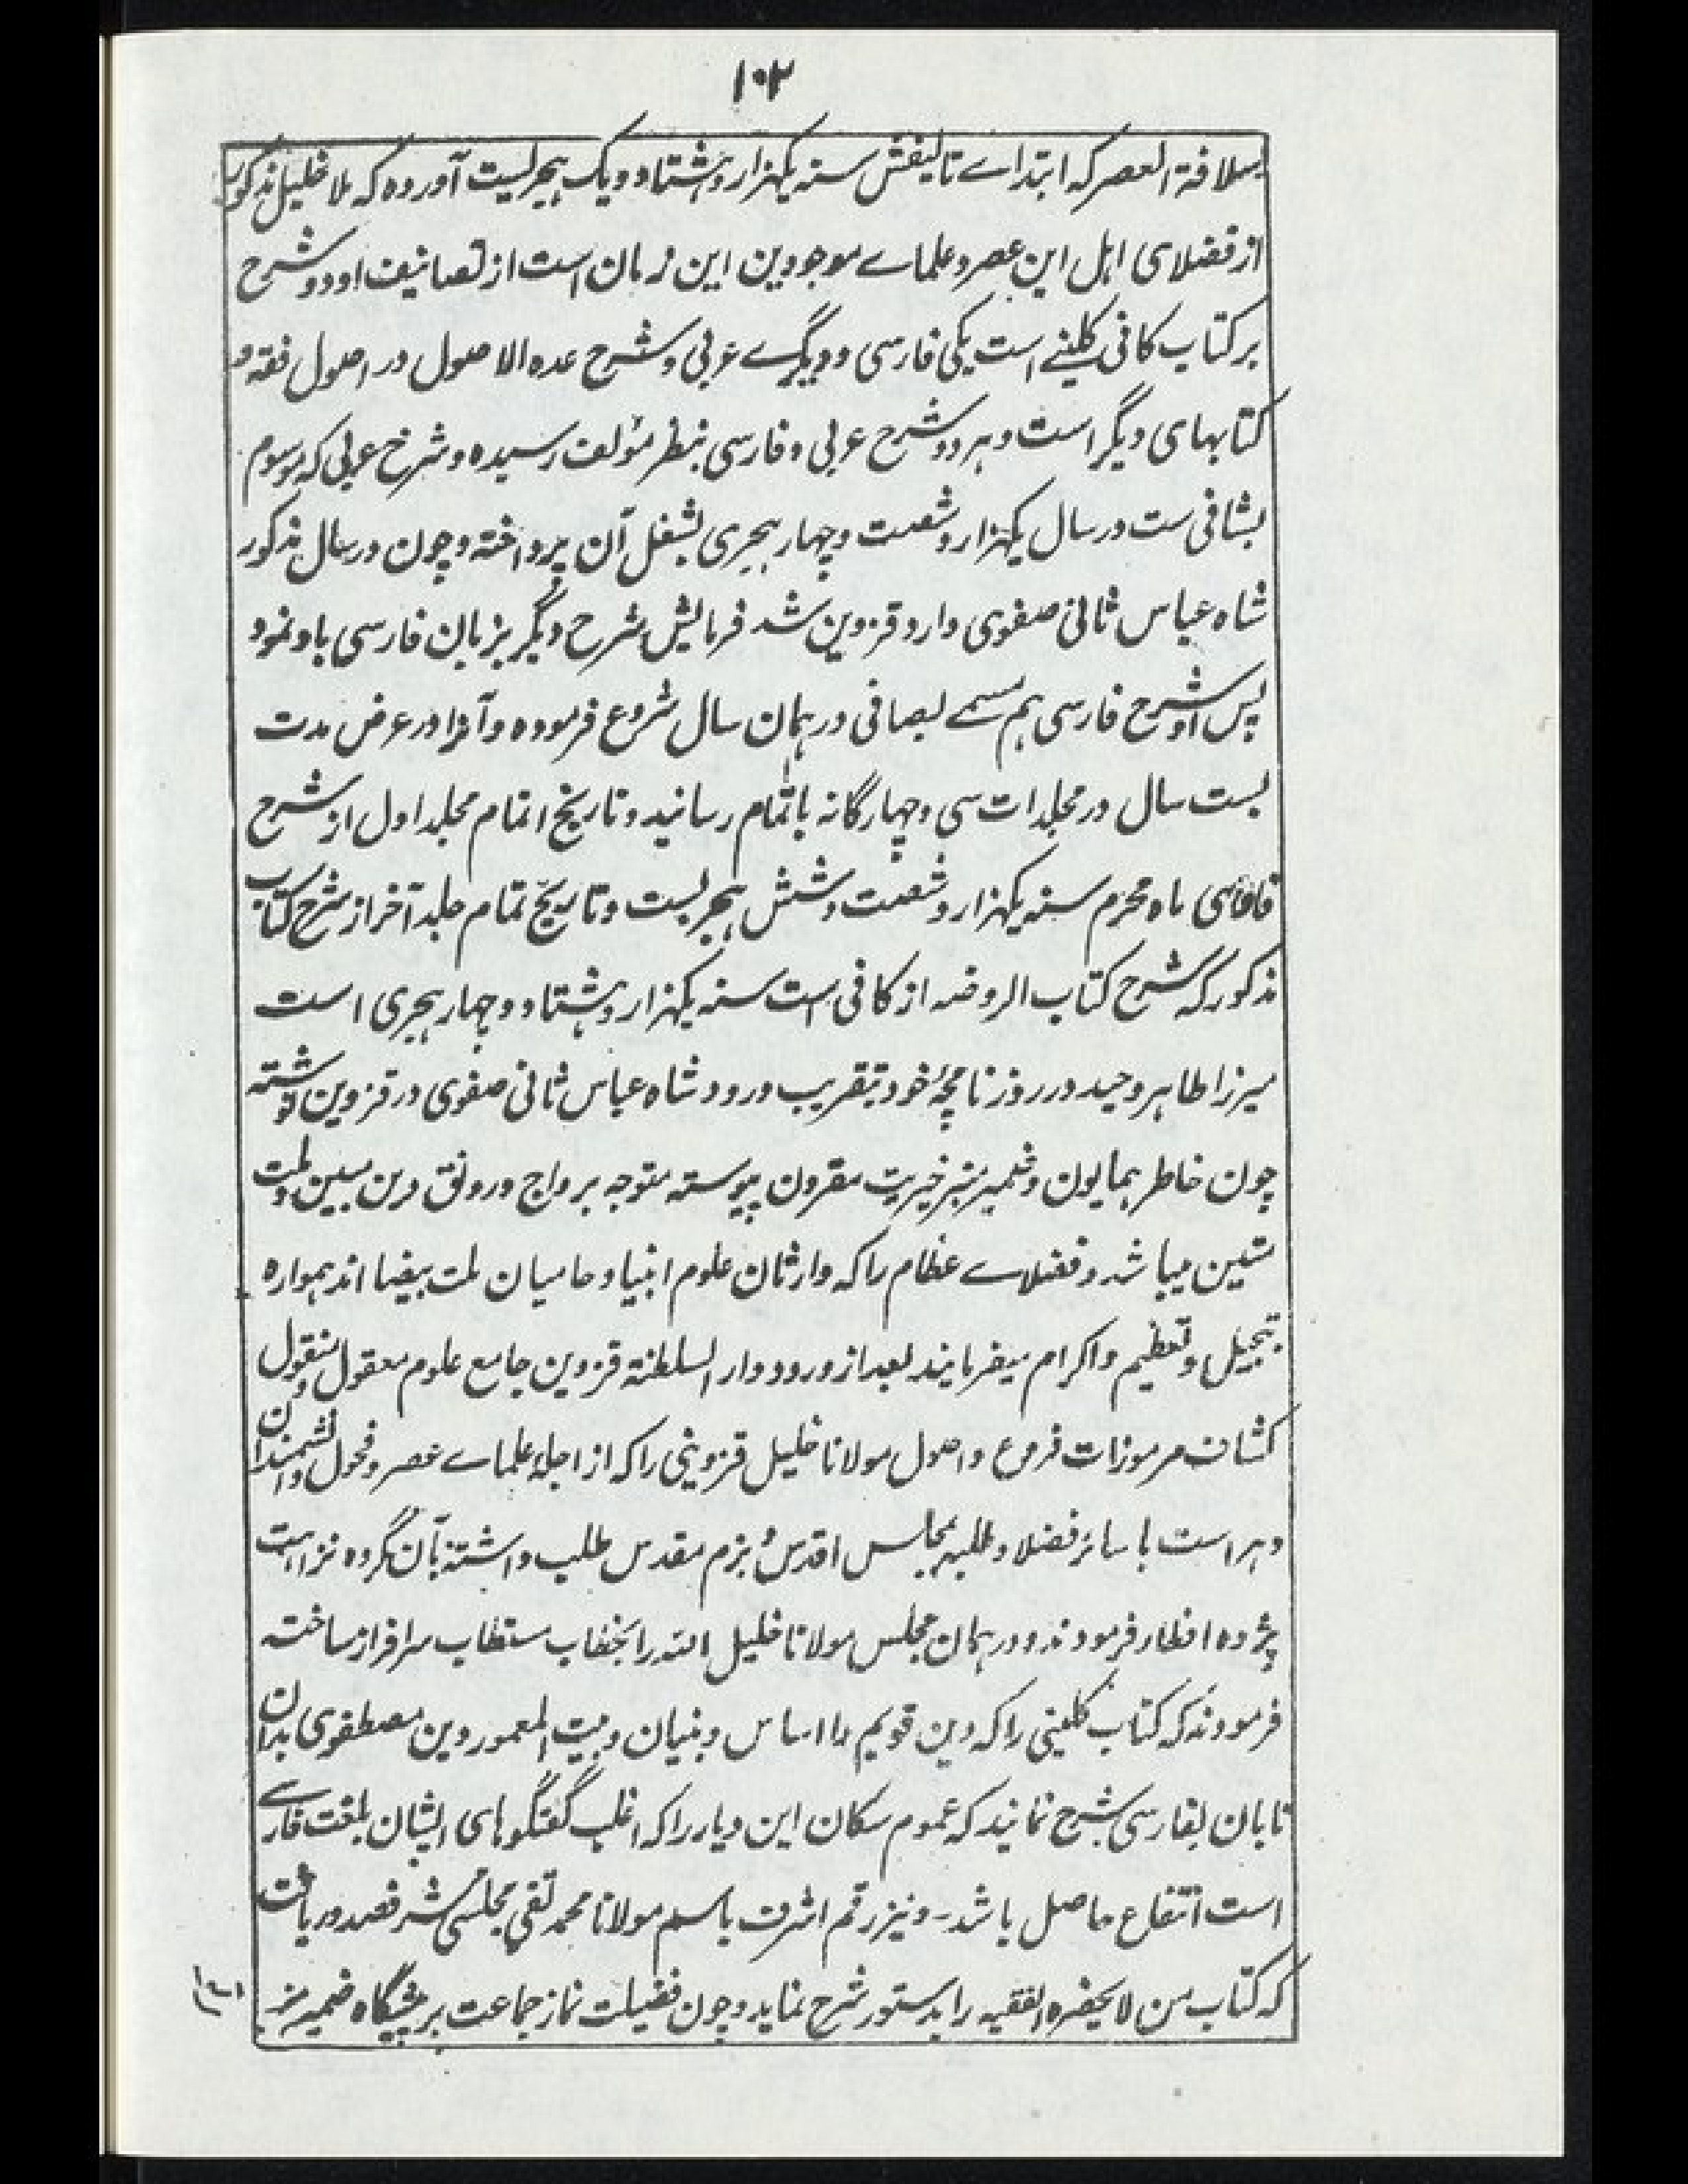 ۱۰۲
بسلافة العصر که ابتداے تالیفش سنہ یکهزار و هشتاد و یک هجریست آورده که ملا خلیل مذکور
از فضلای اهل این عصر و علماے موجودین این زمان است از تصانیف او دو شرح
بر کتاب کافی کلینے است یکی فارسی و دیگرے عربی و شرح عده الاصول در اصول فقه و
کتابهای دیگر است و هر دو شرح عربی و فارسی بنظر مؤلف رسیده و شرح عربی که موسوم
بشافی ست در سال یکهزار و شصت و چهار هجری بشغل آن پرداخته و چون در سال مذکور
شاه عباس ثانی صفوی وارد قزوین شد فرمایش شرح دیگر بزبان فارسی باو نمود
پس او شرح فارسی هم مسمے بصافی در همان سال شروع فرموده و آنرا در عرض مدت
بست سال در مجلدات سی و چهارگانه باتمام رسانید و تاریخ اتمام مجلد اول از شرح
فارسی ماه محرم سنه یکهزار و شصت و شش هجریست و تاریخ تمام جلد آخر از شرح کتاب
مذکور که شرح کتاب الروضه از کافی است سنه یکهزار و هشتاد و چهار هجری است
میرزا طاهر وحید در روزنامچۂ خود بتقریب ورود شاه عباس ثانی صفوی در قزوین نوشته
چون خاطر همایون و ضمیر منیر خیریت مقرون پیوسته متوجه برواج و رونق دین مبین و ملت
متین میباشد و فضلاے عظام را که وارثان علوم انبیا و حامیان ملت بیضا اند همواره
تبجیل و تعظیم و اکرام میفرمایند بعد از ورود دار السلطنة قزوین جامع علوم معقول و منقول
کشاف مرموزات فروع و اصول مولانا خلیل قزوینی را که از اجلۀ علماے عصر و فحول دانشمندان
دهر است با سائر فضلا و طلبه بمجلس اقدس و بزم مقدس طلب داشته بآن گروه نزاهت
پژوه افطار فرمودند و در همان مجلس مولانا خلیل الله را بخطاب مستطاب سرافراز ساخته
فرمودند که کتاب کلینی را که دین قویم را اساس و بنیان و بیت المعمور دین مصطفوی بدان
تابان بفارسی شرح نمایند که عموم سکان این دیار را که اغلب گفتگوهای ایشان بلغت فارسے
است انتفاع حاصل باشد - و نیز رقم اشرف باسم مولانا محمد تقی مجلسی شرف صدور یافت
که کتاب من لا یحضره الفقیه را بدستور شرح نماید و چون فضیلت نماز جماعت بر پیشگاه ضمیر منیر